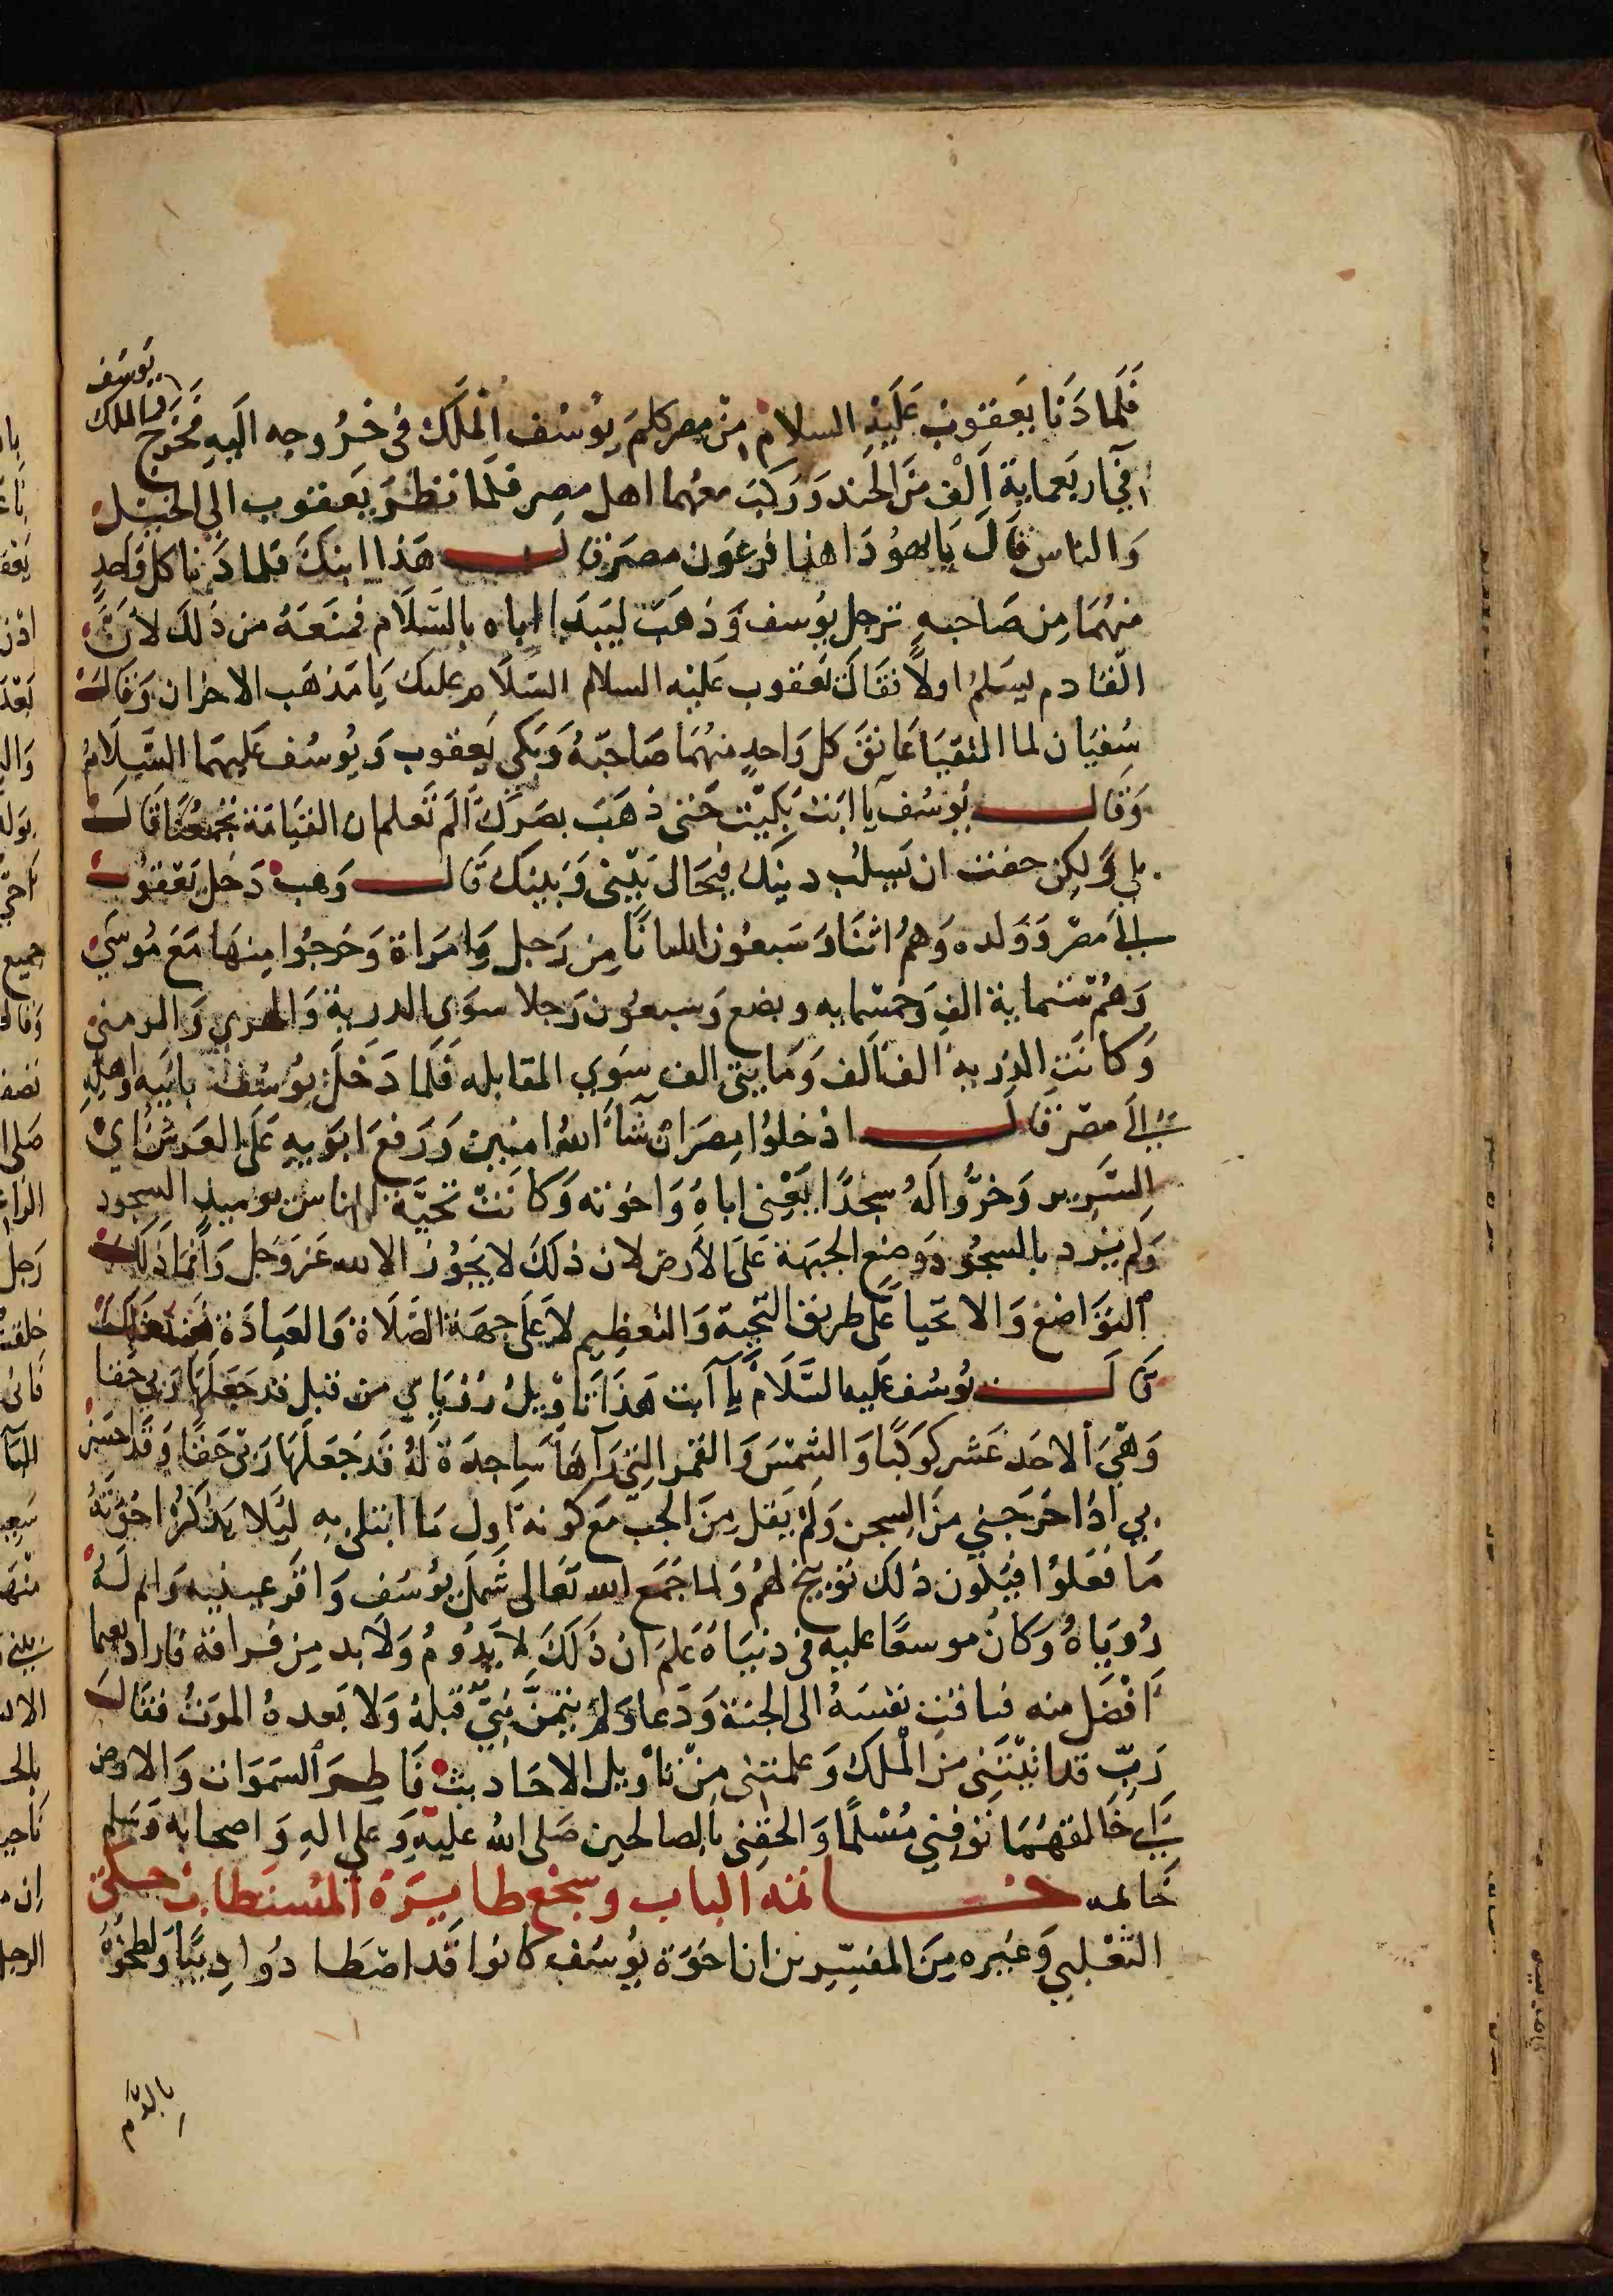 فَلَما دَنَا يَعقوب عَلَيْهِ السلام مِنْ مصر كلمَ يُوسُف الْمَلَك فى خرُوجه اليه فخَرَج يوسَف والملك
في اربَعماية اَلْف مَن الجند وَرَكبَ معهما اهل مصر فلَما نظرَ يَعقوب الي الخيل
وَالناس قالَ يَا يهوُدَا هذا فرعَون مصَر قال هَذا ابنكَ فلما دَنا كل وَاحدٍ
منهُمَا مِن صَاحبهِ ترجل يُوسف وَذهَبَ ليَبدَا اباه بالسَّلَام فمنَعَهُ من ذَلكَ لانَّ
القادم يسَلمُ اولاً فقَالَ يَعقوب عَليْه السلام السَّلام عليك يَا مَذهَب الاحزان وَقالَ
سُفيَان لما التقيَا عَانقَ كل وَاحدٍ منهُمَا صَاحبَهُ وَبَكي يَعقوب وَيُوسُف عَليهمَا السَّلَامُ
وَقال يُوسُف يا ابَت بَكيْتَ حَتى ذهَبَ بصَرَكَ الَم تَعلم ان القيَامَة تجمَعُنَا قَال
بلي وَلكِن خفت ان تسلبَ دينَكَ فيحَال بَيْنى وَبينكَ قَال وَهب دَخلَ يَعْقوُب
الي مصرَ وَوَلده وَهُم اثنَان وَسَبعُون انسانًا مِن رَجل وَامرَاة وَخرجُوا منهَا مَعَ مُوسَي
وَهُم ستماية الف وَخمسمايه وبضع وَسَبعُون رَجلا سوَى الذرية وَالهرمي وَالزمني
وَكانَت الذرية الف اَلف وَمَايتى الف سِوَي المقابله فَلَما دَخَل يوُسُف بابَيه وَاهله
الي مصر قال ادْخلوُا مِصرَ ان شَآءَ اللهُ امنين وَرَفعَ ابَوَيهِ عَلَى العَرش اي
السَّرير وَخرُّوا لَهُ سجدًا يَعْني اباهُ وَاخوَته وَكانَتْ تَحيَّة الناس يوميذ السجود
وَلَم يرد بالسجُود وَوضع الجبهَة عَلَى الاَرض لان ذلكَ لا يَجُوز الا لله عَز وَجَل وَانمَا ذَلكَ
التوَاضع وَالانحيَا عَلَى طريق التحيَة وَالتعظيم لا عَلَى جهَة الصَّلَاة وَالعبادَة فعند ذَلك
قَالَ يُوسُف عَليه السَّلَام يا ابَت هَذا تَاوْيلُ رُؤيَاي من قبل قد جَعَلهَا رَبي حَقا
وَهيَ الاحدَ عَشر كَوكبًا وَالشمْسَ وَالقمر التي رَآهَا سَاجدَة لهُ قد جَعَلَهَا رَبي حَقًا وَقد احسَن
بي اذ اخرَجَني منَ السِجن وَلَم يَقل مِنَ الجب مَع كونه اَول مَا ابتلى بهِ لئَلا يَذكرُ اخوَتَهُ
مَا فعَلوُا فيَكون ذلكَ توبيخ لهُم وَلما جَمَع الله تَعَالى شمل يوُسُف وَاقر عينيه وَاتم لَهُ
رُؤيَاهُ وَكانَ موسعًا عليه فى دنيَاهُ عَلمَ ان ذَلكَ لا يَدُومُ وَلا بد مِن فراقه فاراد نعيما
اَفضَل منه فتاقت نفسَهُ الى الجنة وَدَعا وَلَم يتمنَّ نبيٌّ قَبلَهُ وَلا بَعدهُ المَوتَ فقَال
رَبّ قد اتَيْتَنى منَ الْملك وَعلمتَنى مِنْ تَاوْيل الاحَاديث فَاطِرَ السَمَوَات وَالارض
الي خَالقهُمَا توفني مُسْلمًا وَالحقني بالصَالحين صَلى اللهُ عَليهِ وَعَلي الهِ وَاصحَابه وَسَلم
خَاتمه خاتمه الباب وسجع طايرَهُ المُستَطاب حكى
الثعْلبي وَغيره مِنَ المفسّرين ان اخوَة يوُسُف كانوُا قد اصْطَادُوا ذِيبًا وَلطخُوْهُ
بالدَّم